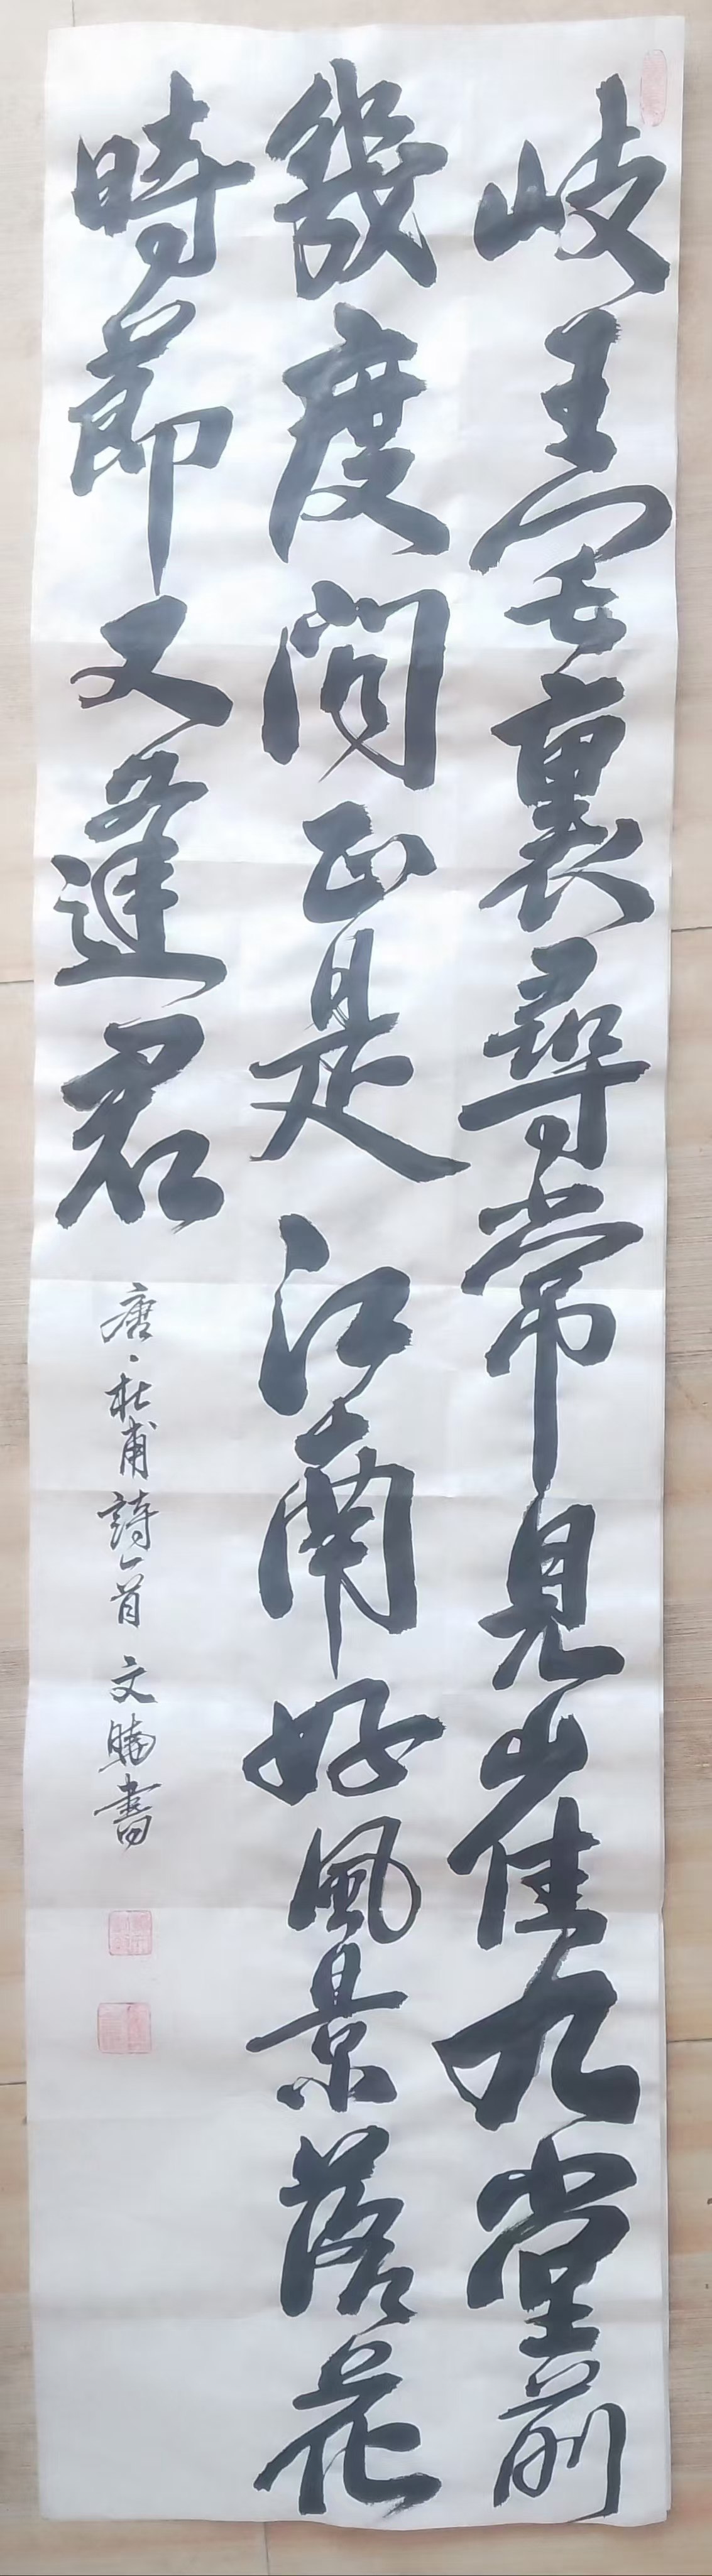 岐王宅裏尋常見崔九堂前
幾度聞正是江南好風景落花
時節又逢君
唐、杜甫詩一首 文書